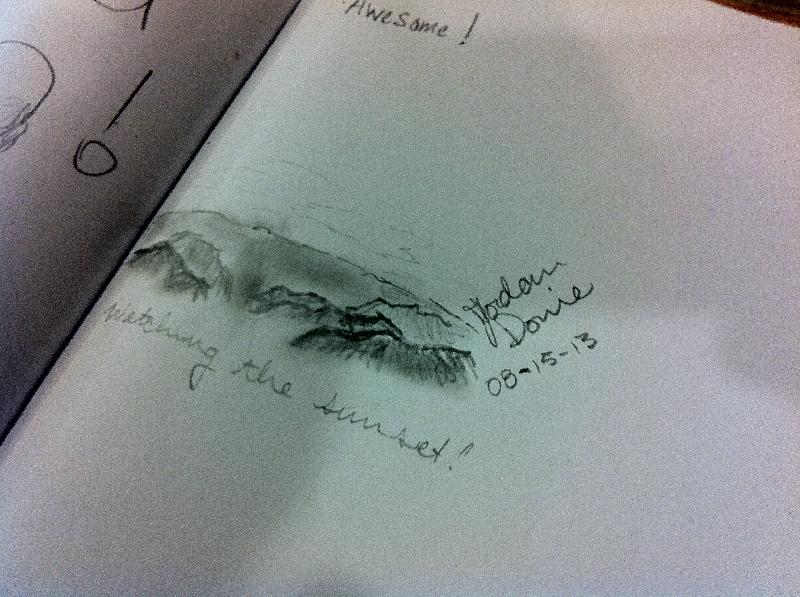 Awesome!
Jordan
Dorie
08-15-13
Watching the sunset!